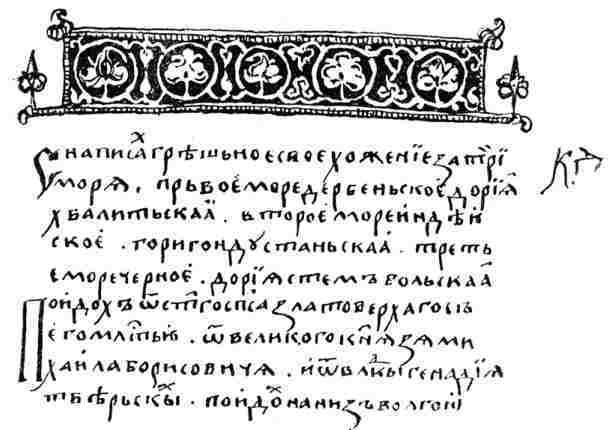 Сꙗ написах грѣшьное свое хожениѥ за три
моря . прьвое море дербеньскоѐ дориꙗ
хвалитьскаꙗ . второе море индѣи
скоѐ . горигондустаньскаꙗ . треть
е море черноѐ . дориꙗ стемъбольскаа
Поидохъ ѿ стго спса златоверхаго сь
ѐго млстью . ѿ великого кнꙗзꙗ ми
хаила борисовичꙗ . и ѿ влкы генадиꙗ
тверьскы . поидох на низ волгои